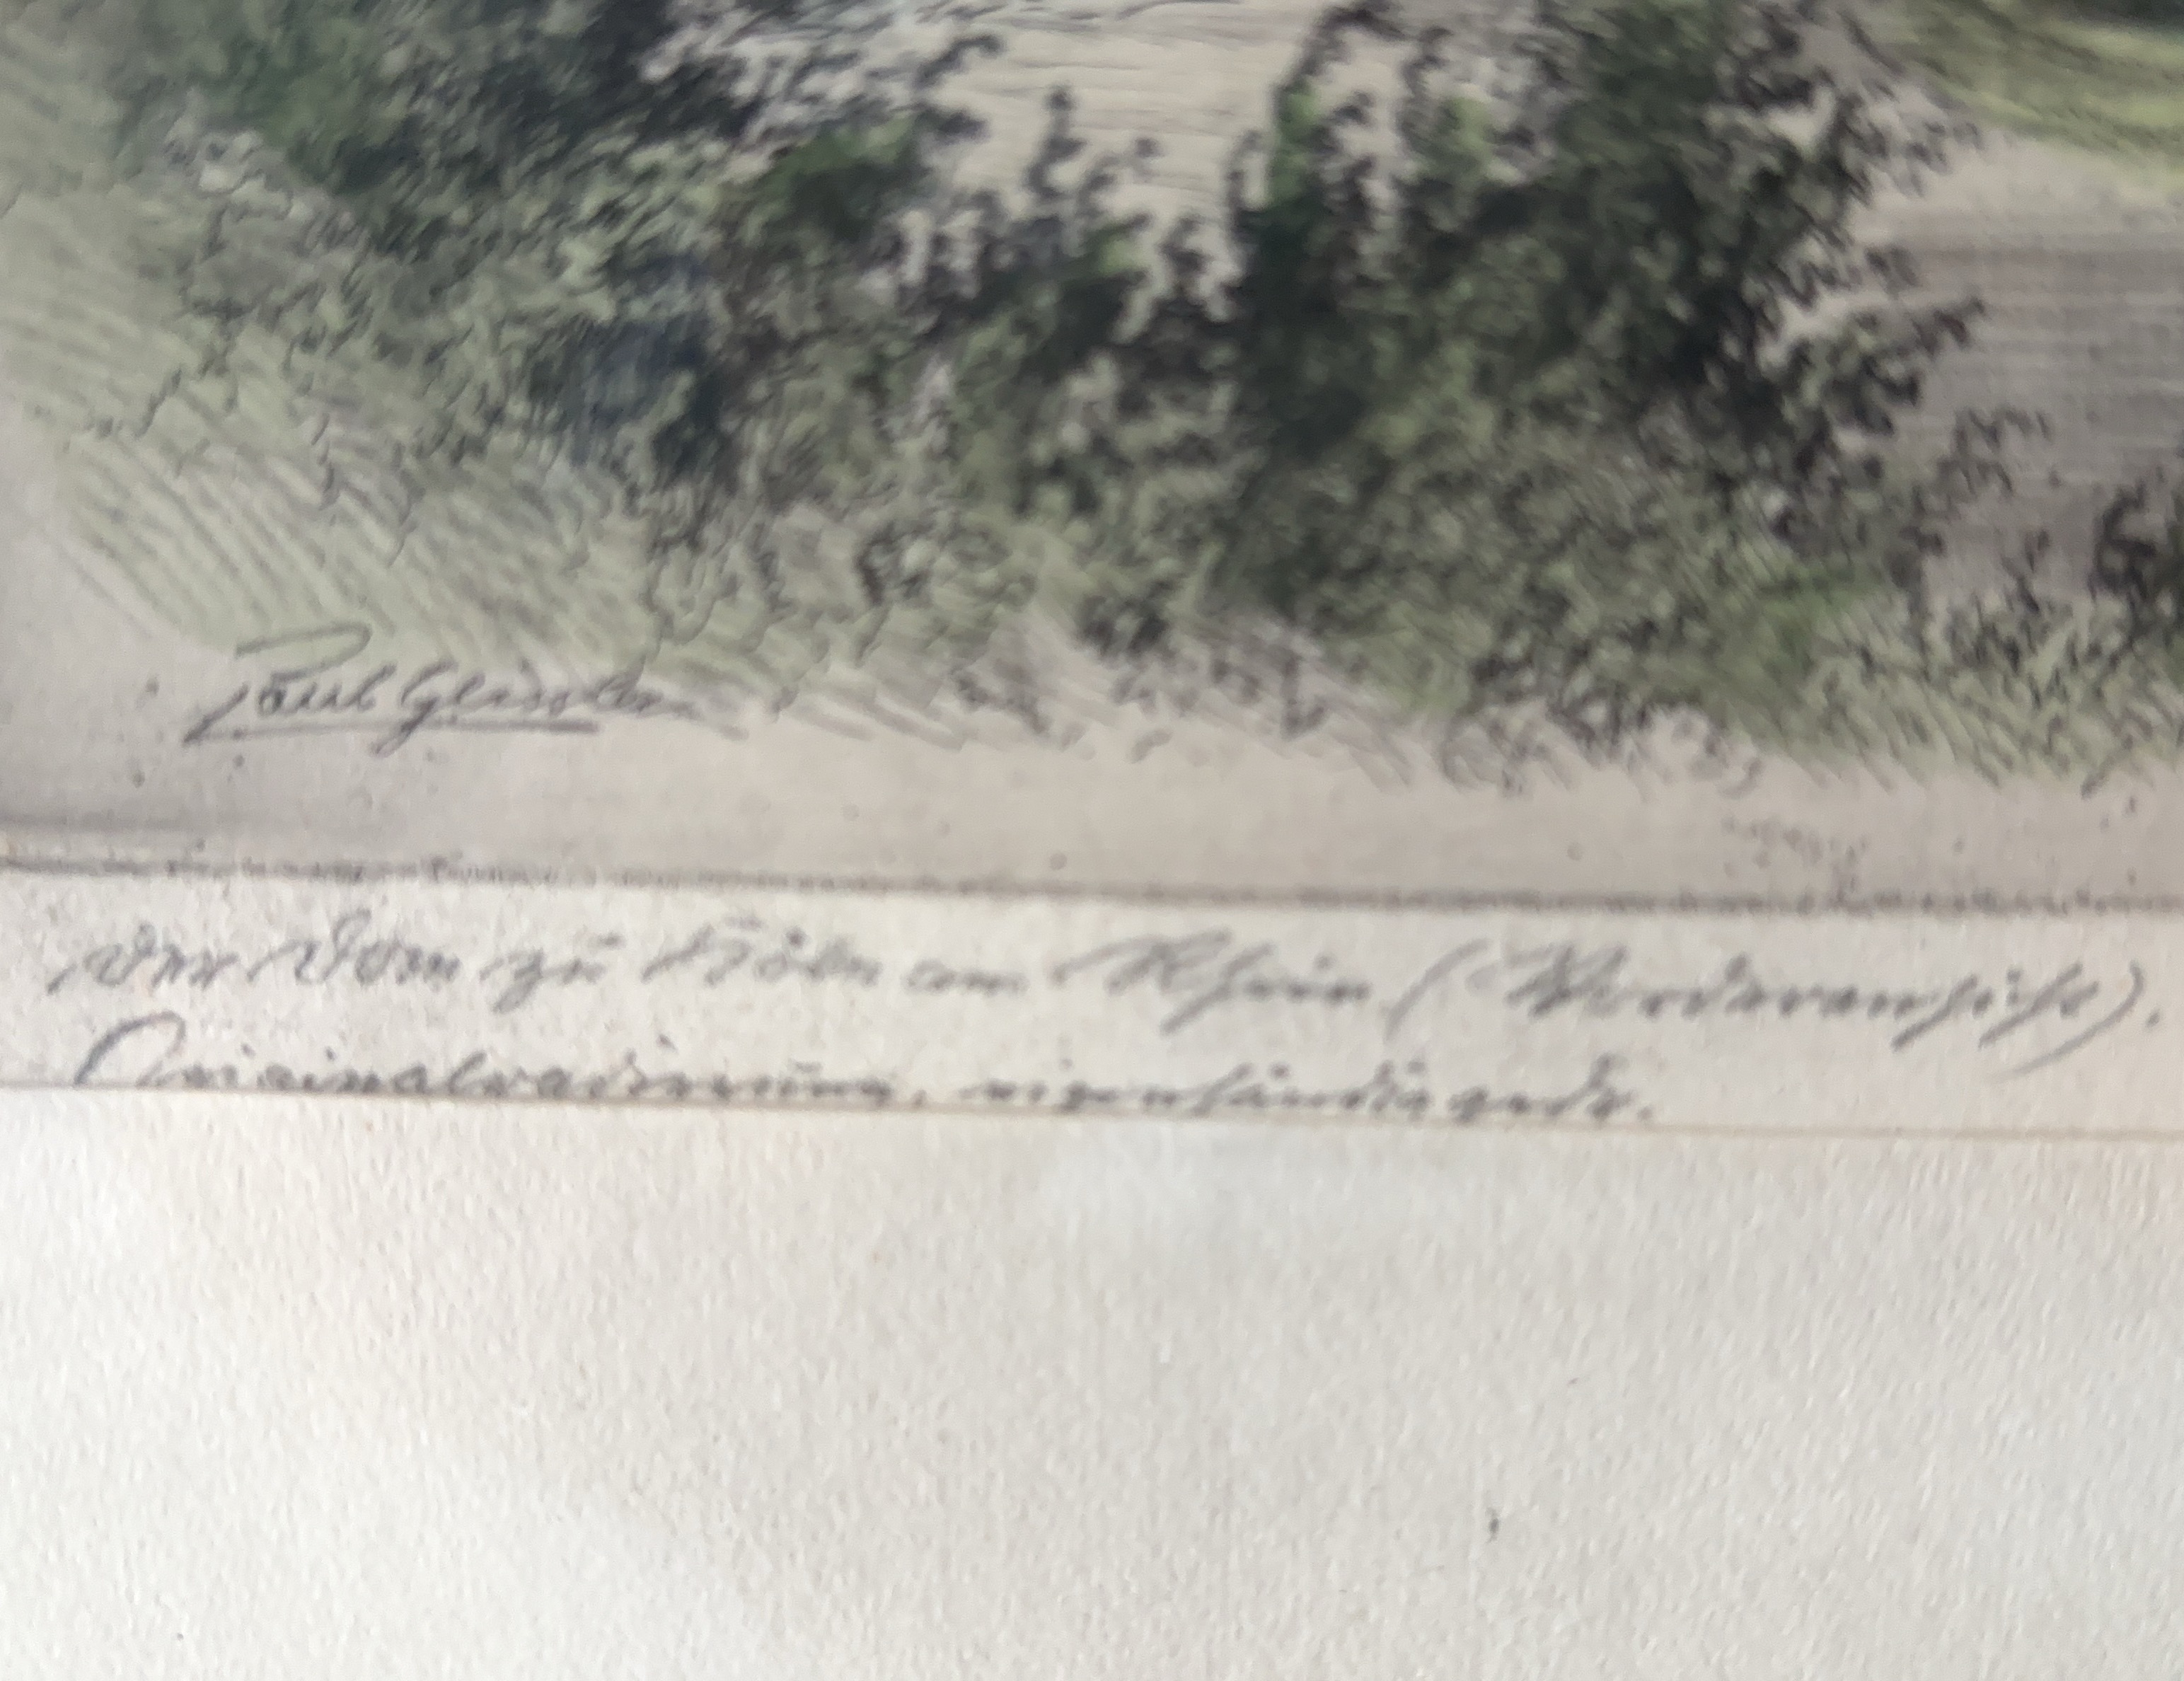 Paul Geissler
Der Dom zu Köln am Rhein (Vorderansicht).
Originalradierung, eigenhändig gedr.